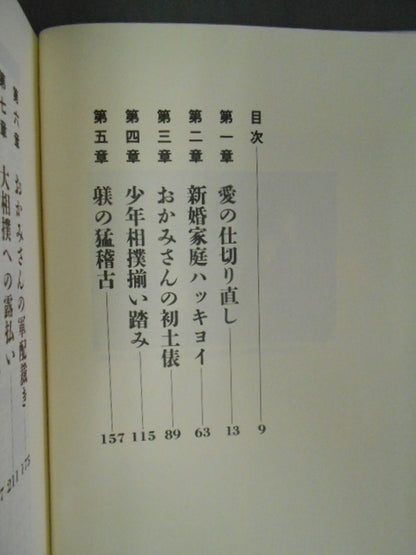 目次 9
第一章 愛の仕切り直し 13
第二章 新婚家庭ハッキヨイ 63
第三章 おかみさんの初土俵 89
第四章 少年相撲揃い踏み 115
第五章 躾の猛稽古 157
第六章 おかみさんの軍配裁き 175
第七章 大相撲への露払い 211